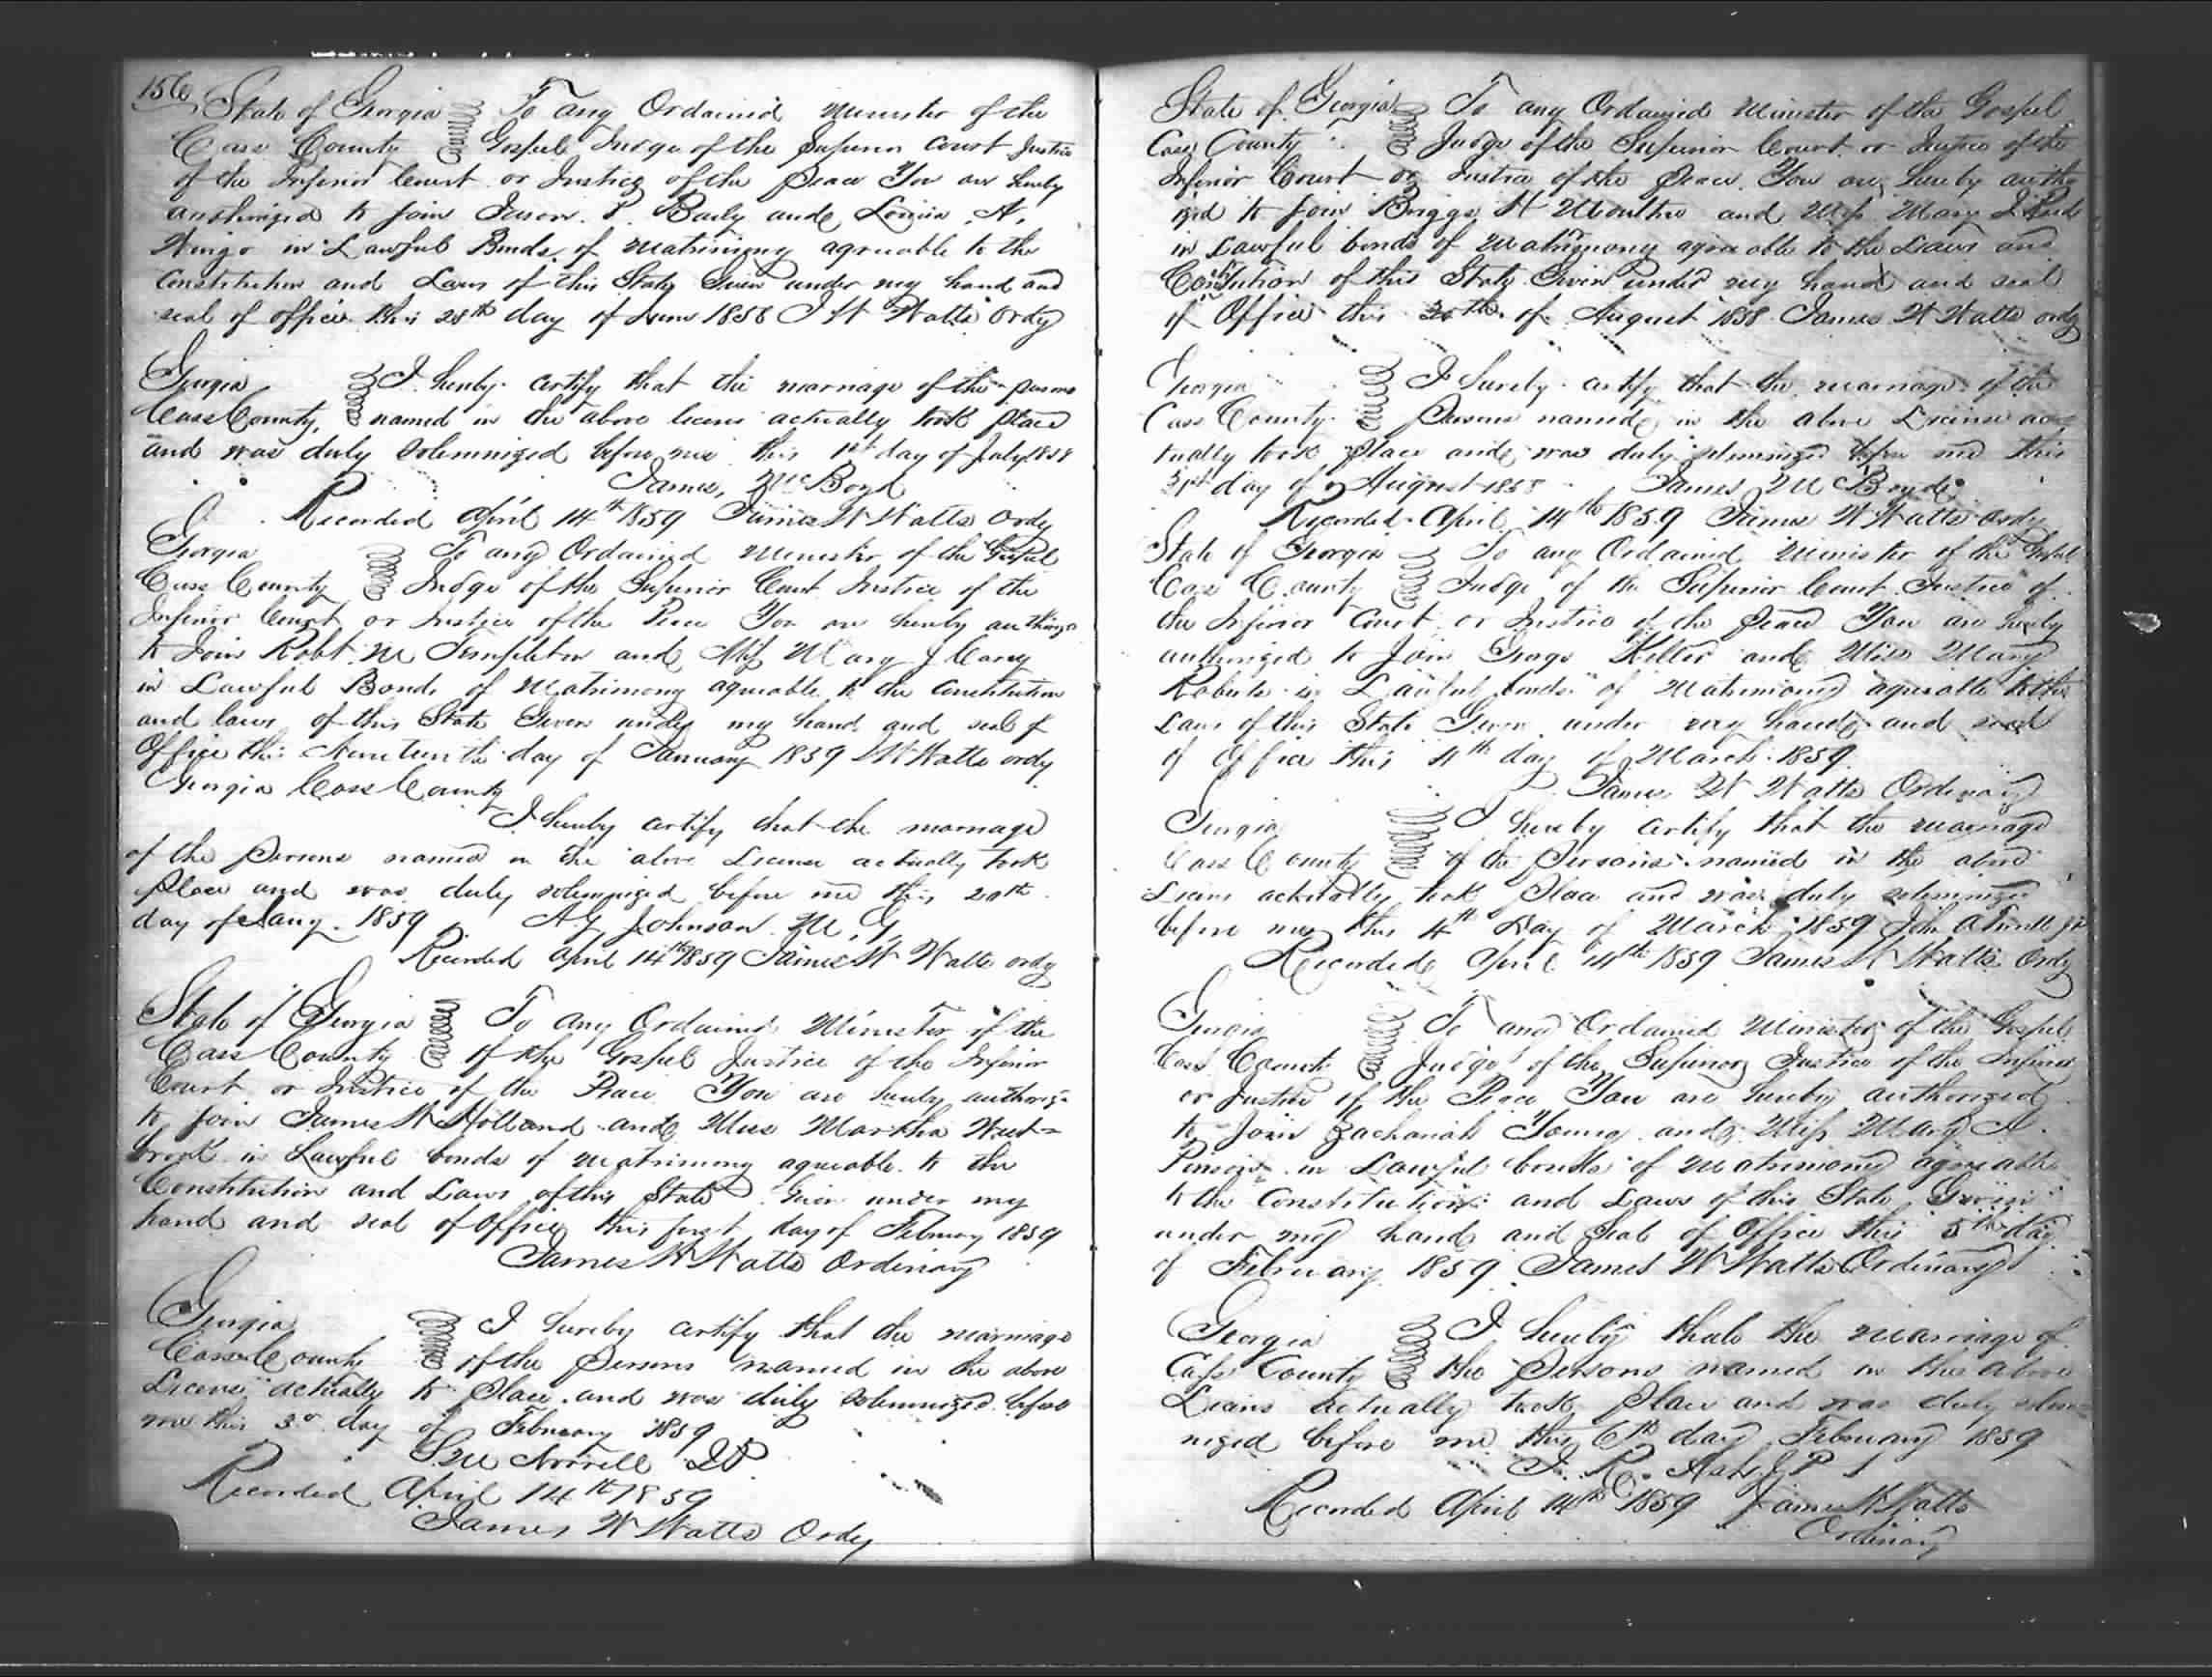 156
State of Georgia To any Ordained Minister of the
Cass County Gospel Judge of the Superior Court Justice
of the Inferior Court or Justice of the Peace You are hereby
authorized to join Jason P. Baily and Louisa A.
Wingo in Lawful Bonds of Matrimony agreeable to the
constitution and Laws of this State Given under my hand and
seal of office this 28th day of June 1858 J W Watts Ordy
Georgia I hereby certify that the marriage of the persons
Cass County, named in the above license actually took place
and was duly solemnized before me this 1st day of July 1858
James, McBoyd
Recorded April 14th 1859 James W Watts Ordy
Georgia To any Ordained Minister of the Gospel
Cass County Judge of the Superior Court Justice of the
Inferior Court or Justice of the Peace You are hereby
to Join Robt. M Templeton and Miss Mary J
in Lawful Bonds of Matrimony agreeable to the Constitution
and laws of this State Given under my hand and seal of
Office this day of January 1859 W Watts ordy
Georgia Cass County
I hereby certify that the marriage
of the Persons named in the above License actually took
place and was duly solemnized before me this 20th
day of Jany. 1859 A. G. Johnson. M. G.
Recorded April 14th 1859 James W Watts ordy
State of Georgia To any Ordained Minister of the
Cass County of the Gospel Justice of the Inferior
Court or Justice of the Peace You are hereby
to join James W Holland and Miss Martha West=
brook in Lawful bonds of Matrimony agreeable to the
Constitution and Laws of this State Given under my
hand and seal of Office this first day of February 1859
James W Watts Ordinary
Georgia I hereby certify that the marriage
Cass County of the Persons named in the above
License actually to Place and was duly solemnized before
me this 3d day of February 1859
Norvell JP
Recorded April 14th 1859
James W Watts Ordy
State of Georgia To any Ordained Minister of the Gospel
Cass County Judge of the Superior Court or Justice of the
Inferior Court or Justice of the Peace. You are hereby
to join Briggs H Moultrie and Miss Mary J
in Lawful bonds of Matrimony agreeable to the Laws and
of this State Given under my hand and seal
of Office this of August 1858 James W Watts ordy
Georgia I hereby certify that the marriage of the
Cass County Persons named in the above License ac
tually took Place and was duly solemnized before me this
31st day of August 1858 James McBoyd
Recorded April 14th 1859 James W Watts Ordy
State of Georgia To any Ordained Minister of the Gospel
Cass County Judge of the Superior Court Justice of
the Inferior Court or Justice of the Peace You are hereby
authorized to Join George and Miss Mary
Roberts in Lawful bonds of Matrimony agreeable to the
Laws of this State Given under my hand and seal
of office this 4th day of March 1859
James W Watts Ordinary
Georgia I hereby certify that the marriage
Cass County of the Persons named in the above
actually took Place and was duly solemnized
before me this 4th Day of March 1859 John
Recorded April 14th 1859 James W Watts Ordy
Georgia To any Ordained Minister of the Gospel
Cass County Judge of the Superior Justice of the Inferior
or Justice of the Peace You are hereby authorized
to Join Zachariah Young and Miss Mary A.
in Lawful bonds of Matrimony agreeable
to the Constitution and Laws of this State Given
under my hand and Seal of Office this 5th day
of February 1859 James W Watts Ordinary
Georgia I hereby that the marriage of
Cass County the Persons named in the above
actually took Place and was duly solem
nized before me this 6th day February 1859
J. R. JP
Recorded April 14th 1859 James W Watts
Ordinary